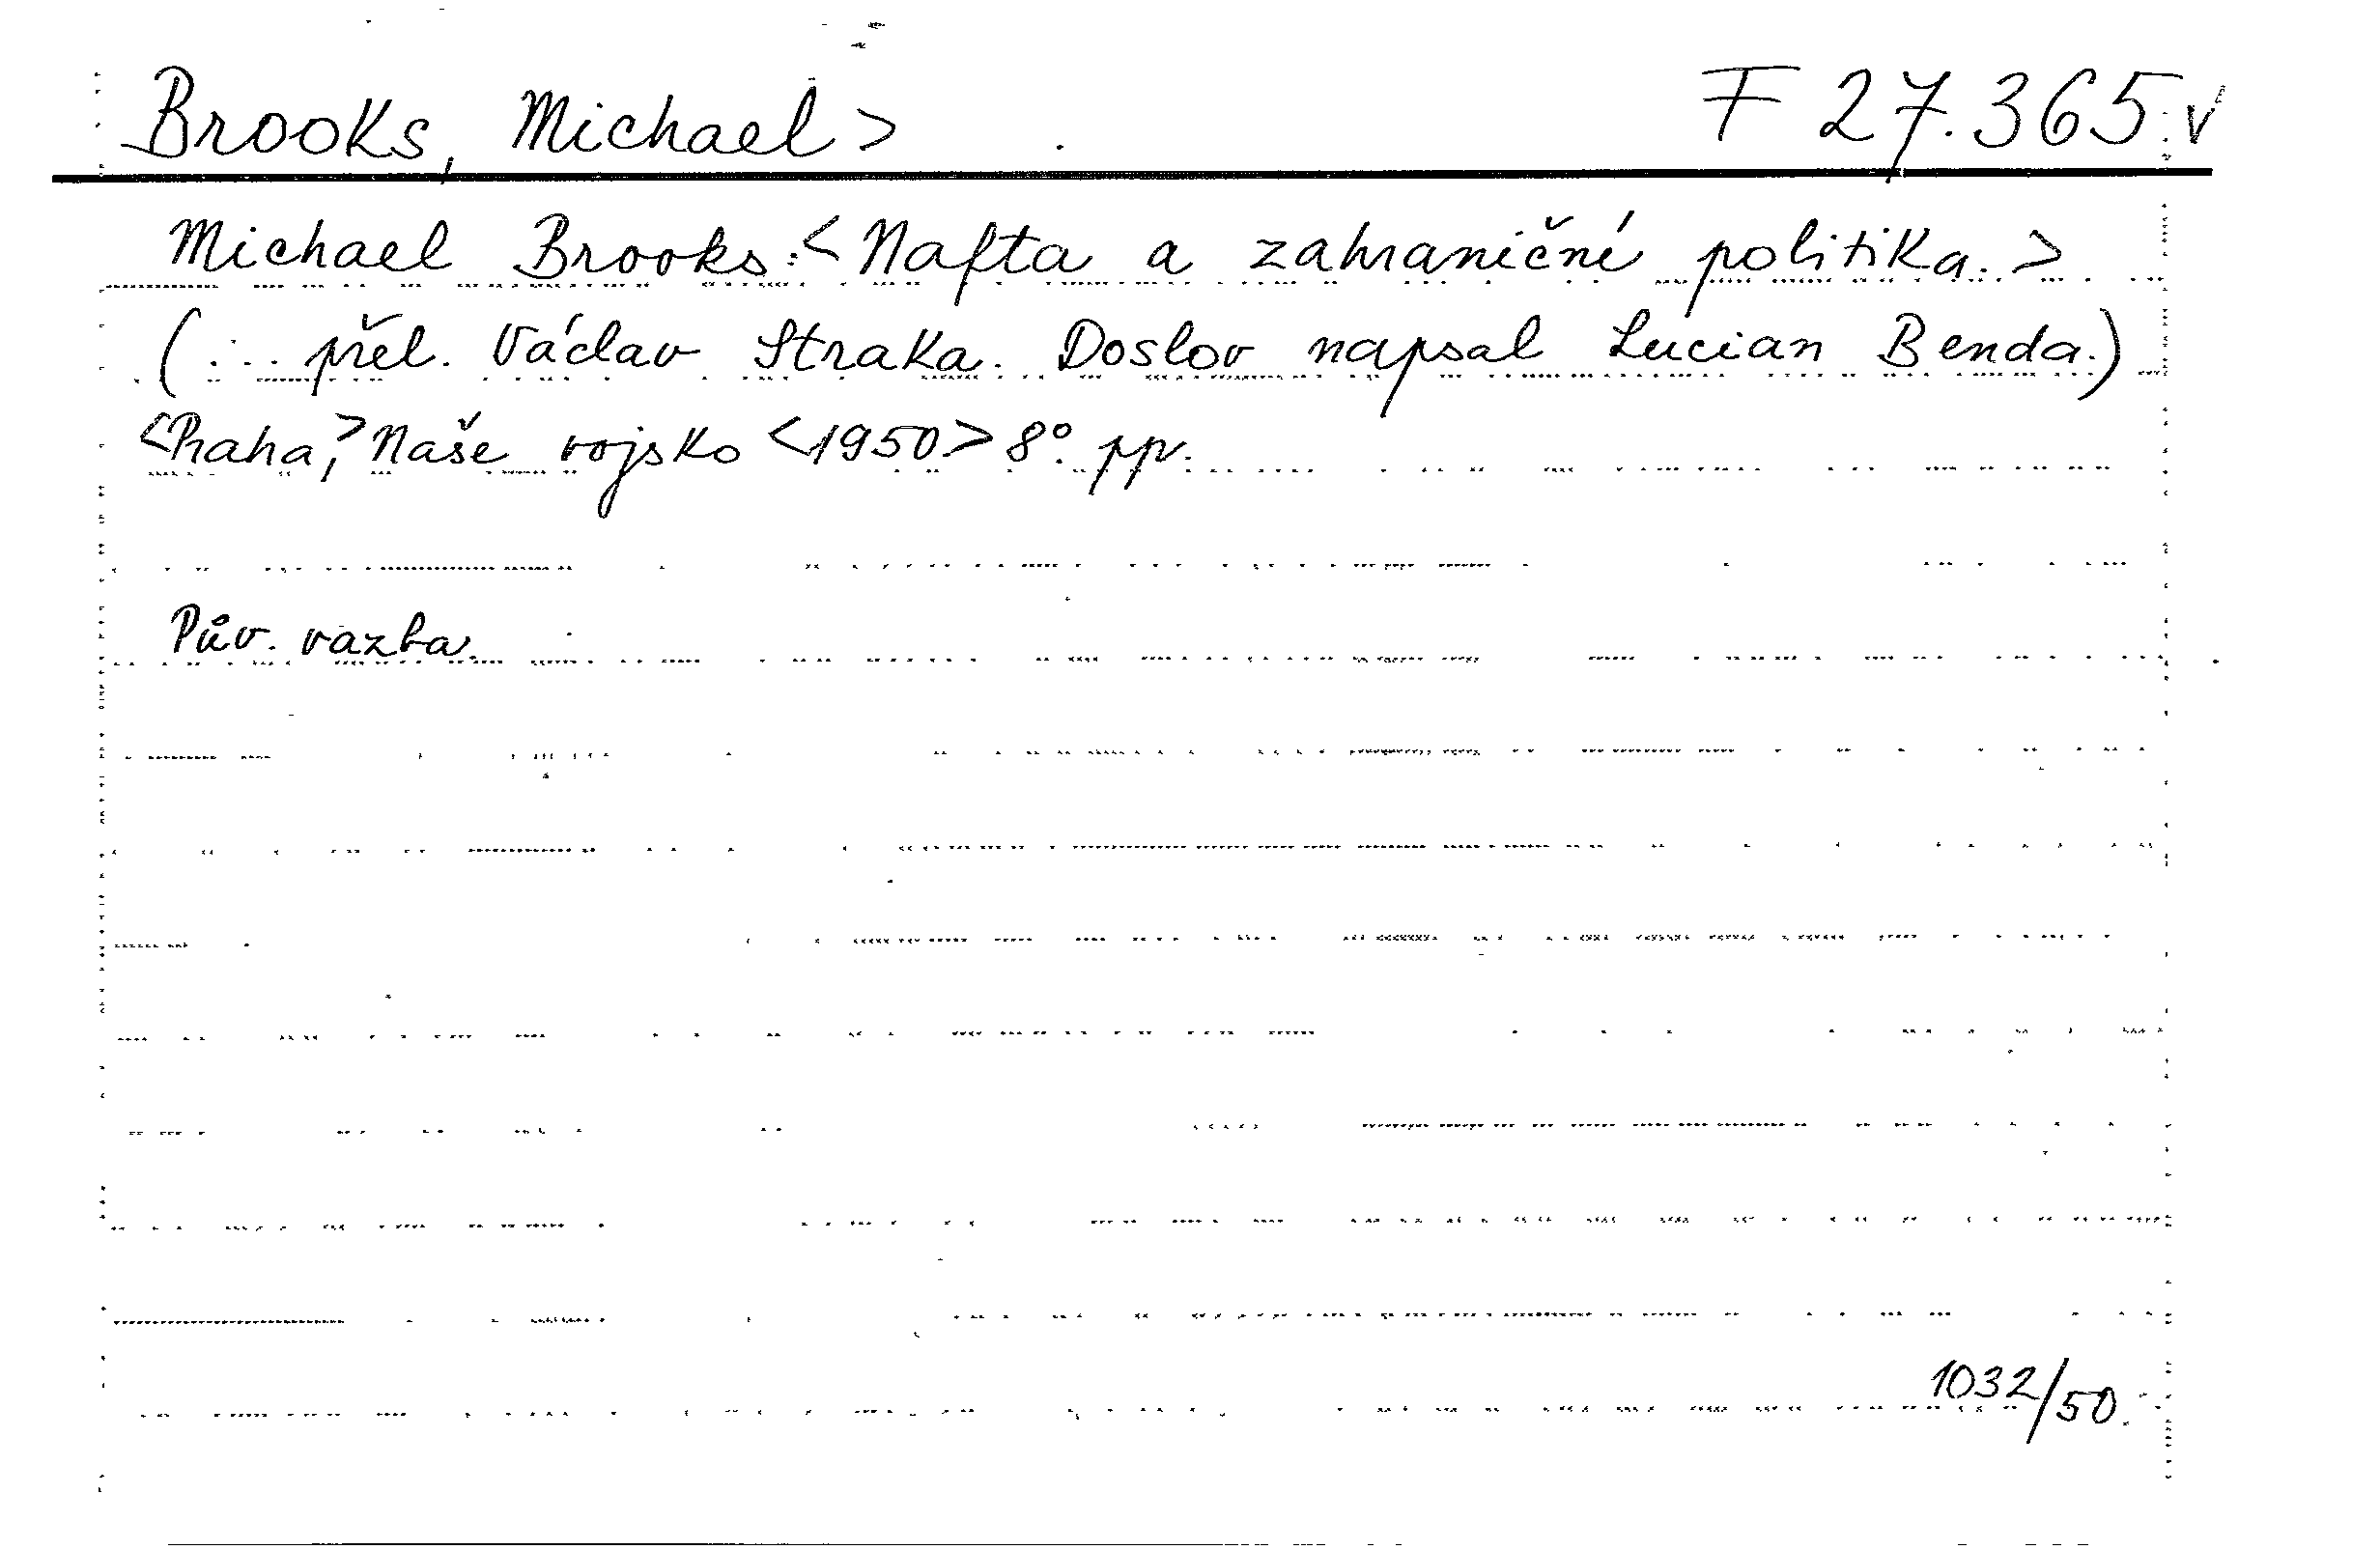 Brooks, Michael> F 27.365 v
Michael Brooks:<Nafta a zahraniční politika.>
(... přel. Václav Straka. Doslov napsal Lucian Benda.)
<Praha,> Naše vojsko <1950> 8°. pp.
Pův. vazba.
1032/50.